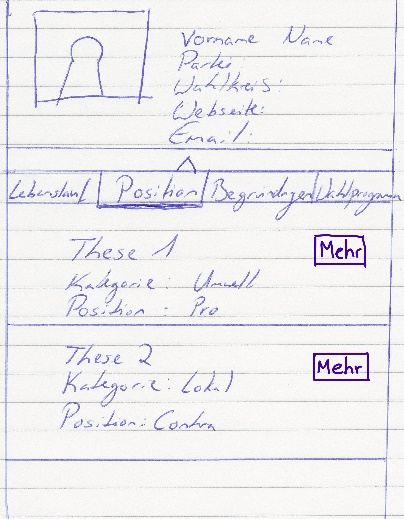 Vorname Name
Partei:
Wahlkreis:
Webseite:
Email:
Lebenslauf Position Begründungen Wahlprogramm
These 1 Mehr
Kategorie: Umwelt
Position: Pro
These 2 Mehr
Kategorie: Lokal
Position: Contra